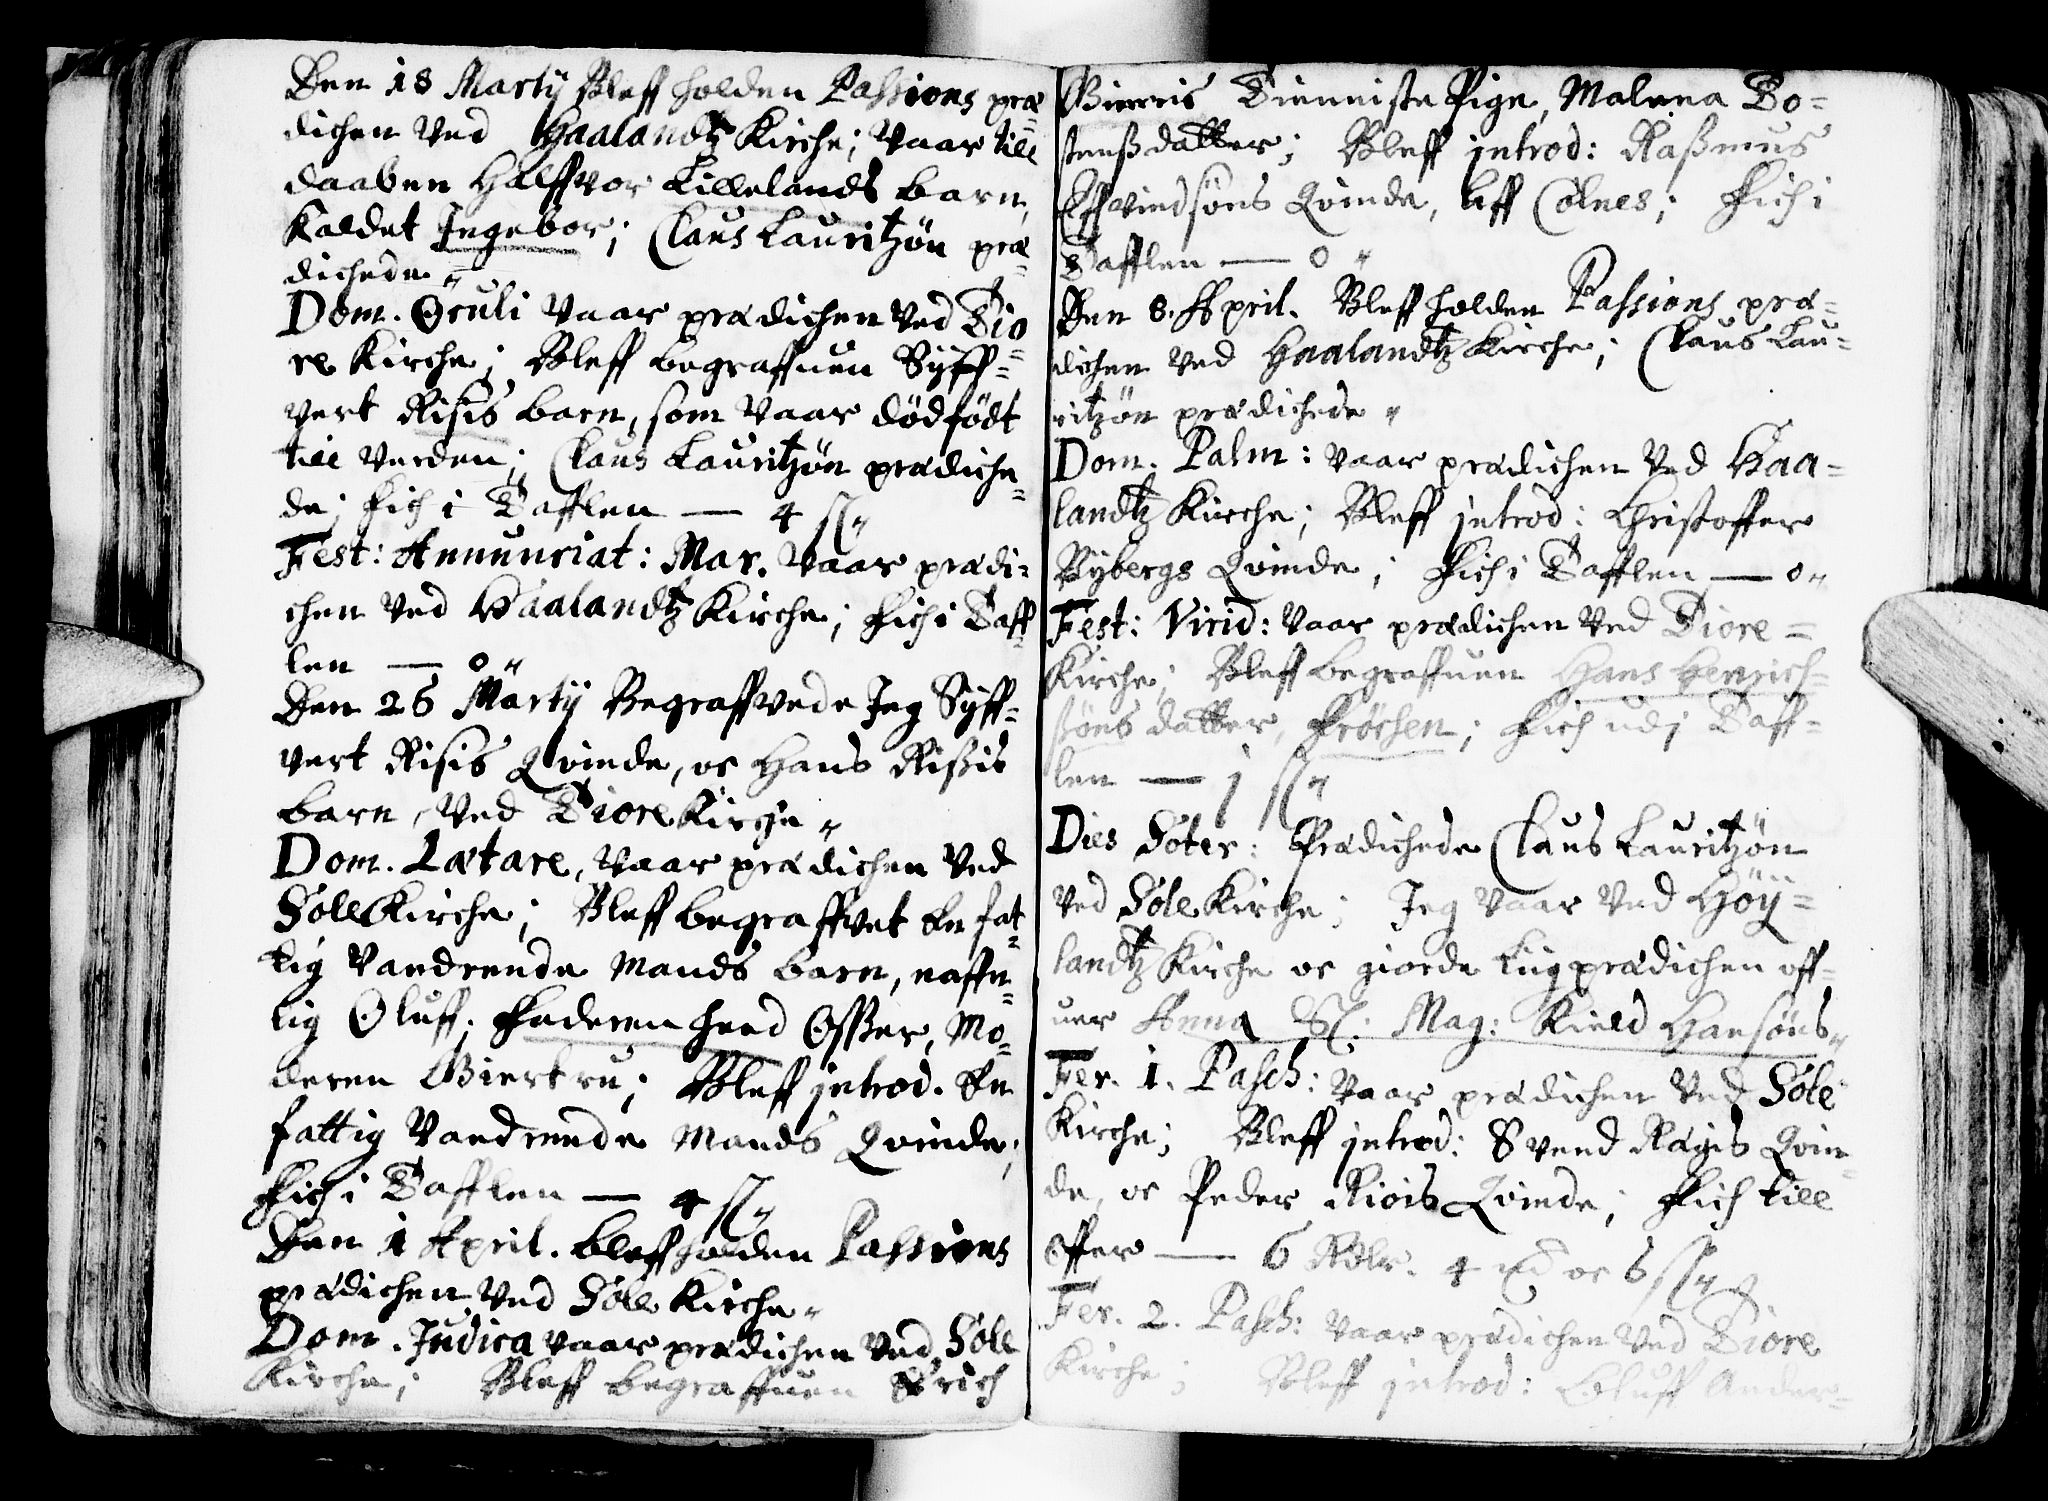 Den 18 Martÿ Bleff holden Passions præ=
dichen Ved Haalandtz Kirche; Vaar till
daaben Halffvor Lillelands barn,
Kaldet Ingebor; Claus Lauritzön præ=
dichede„
Dom. Oculi Vaar prædichen Ved Tio=
re Kirche; Bleff begraffuen Sÿff=
vert Risis barn, som Vaar dödfödt
till Verden; Claus Lauritzön prædiche=
de; Fich i Tafflen — 4 ß„
Fest: Annunciat: Mar. Vaar prædi=
chen Ved Haalandtz Kirche; Fich i Taff=
len — 0„
Den 26 Martÿ Begraffvede Jeg Sÿff=
vert Risis Qvinde, oc Hans Rißis
barn, Ved Tiore Kirche„
Dom. Lætare, Vaar prædichen Ved
Sole Kirche; Bleff begraffvet En fat=
tig Vandrende Mands barn, naffn=
lig Oluff; Faderen heed Asser, Mo=
deren Giertru; Bleff introd. En
fattig Vandrende Mands Qvinde;
Fich i Tafflen — 4 ß„
Den 1 April. bleff holden Passions
prædichen Ved Sole Kirche„
Dom. Judica vaar prædichen Ved Sole
Kirche; Bleff begraffuen Erich
Tienniste Pige, Malena To=
stenßdatter; Bleff introd: Raßmus
Effvindsöns Qvinde, aff Colnes; Fich i
Tafflen — 0„
Den 8. April. Bleff holden Passions præ=
dichen Ved Haalandtz Kirche; Claus Lau=
ritzön prædichede„
Dom. Palm: vaar prædichen Ved Haa=
landtz Kirche; Bleff introd: Christoffer
Rÿbergs Qvinde; Fich i Tafflen — 0„
Fest: Virid: Vaar prædichen Ved Tiore=
Kirche; Bleff begraffuen Hans Henrich=
söns datter, Fröchen; Fich udj Taff=
len — 1 ß„
Dies Soter: Prædichede Claus Lauritzön
Ved Sole Kirche; Jeg Vaar Ved Höÿ=
landtz Kirche oc giorde Liigprædichen off=
uer Anna Sl: Mag: Kield Hansöns„
Fer. 1. Pasch: Vaar prædichen Ved Sole
Kirche; Bleff introd: Svend Ragis Qvin=
de, oc Peder Riois Qvinde; Fich till
offer — 6 Rdlr. 4 oc 6 ß„
Fer. 2. Pasch: Vaar prædichen Ved Tiore
Kirche; Bleff introd: Eoluff Ander=